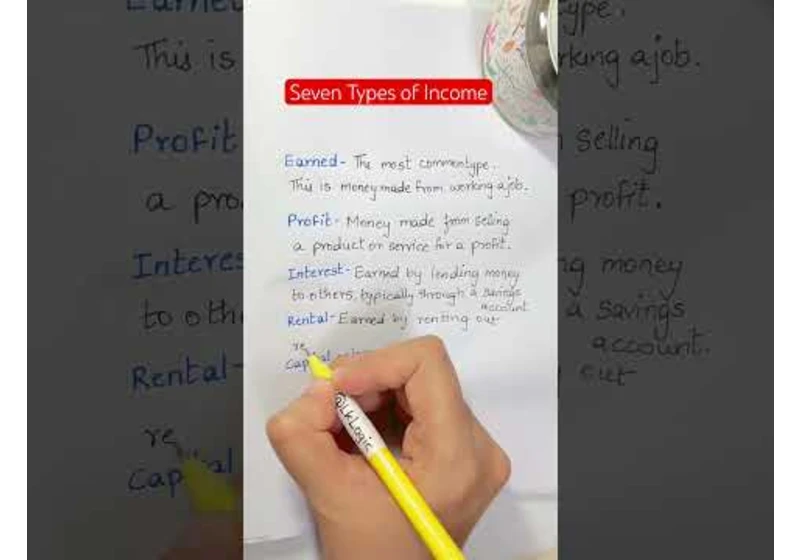 Seven Types of Income
Earned - The most commontype.
This is money made from working a job.
Profit - Money made from selling
a product or service for a profit.
Interest - Earned by lending money
to others, typically through a savings
account
Rental - Earned by renting out
re
Capital
@LkLogic